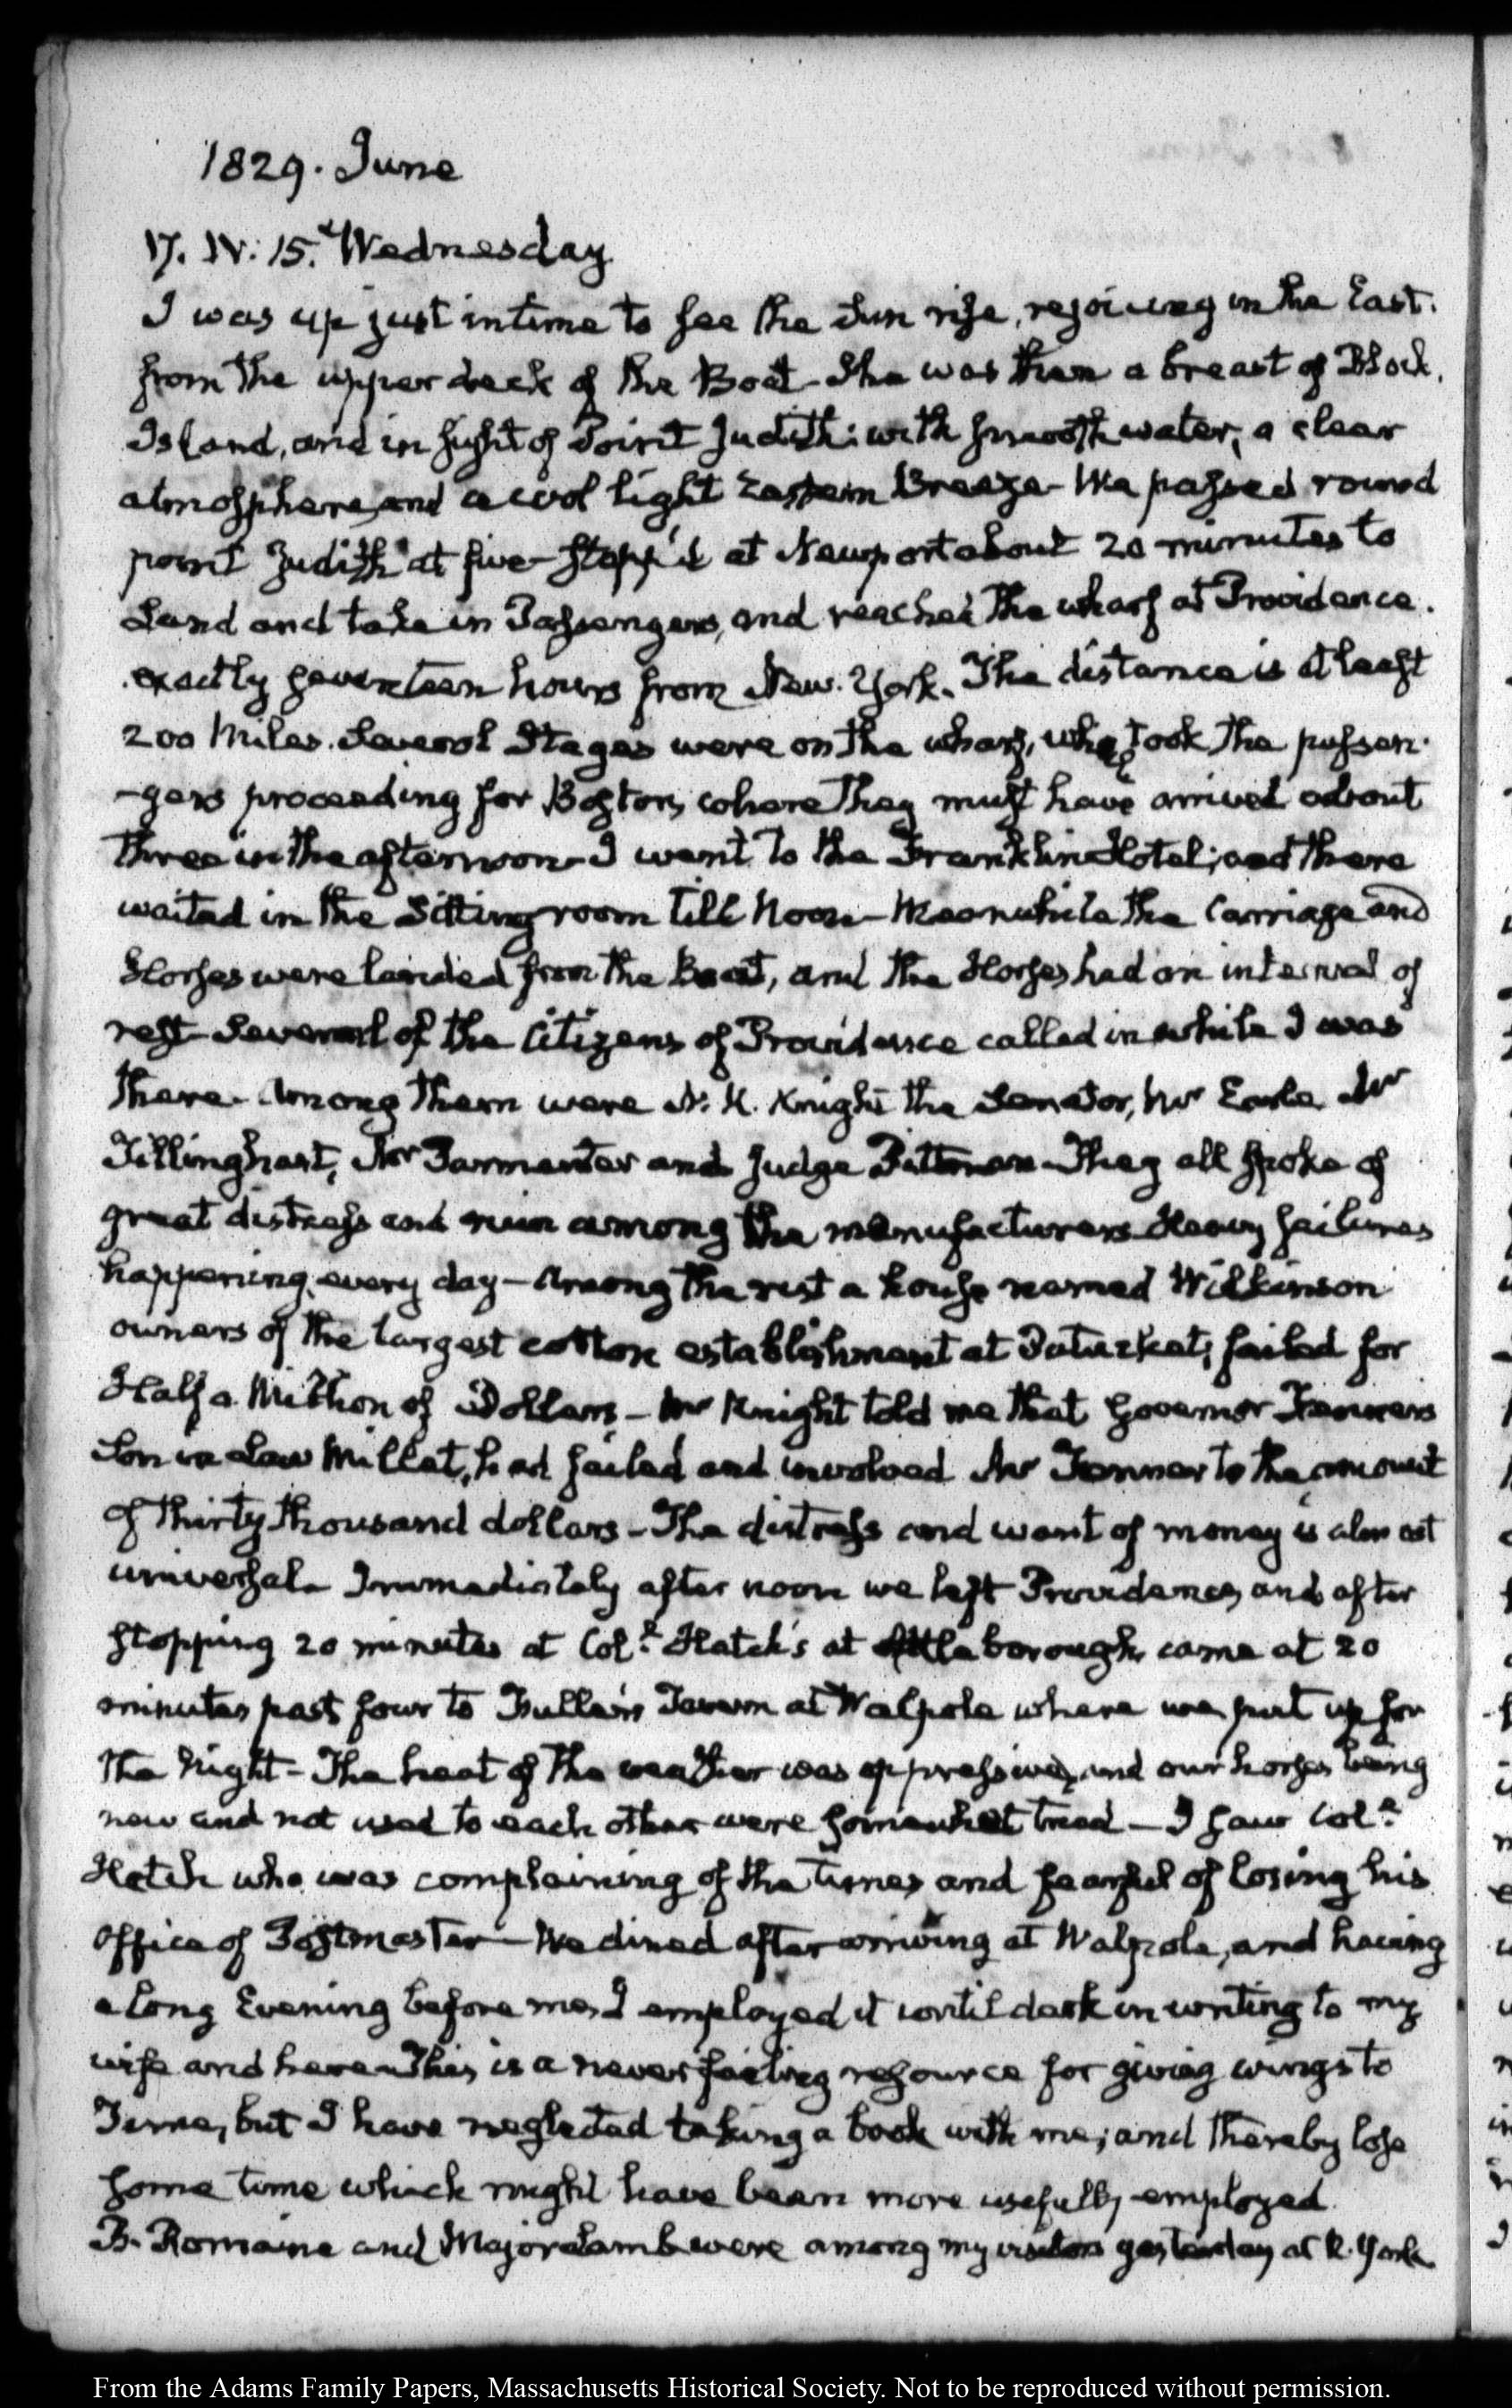 1829. June
17. IV: 15. Wednesday
I was up just in time to see the Sun rise, rejoicing in the East.
from the upper deck of the Boat - She was then a breast of Block.
Island, and in sight of Point Judith: with smooth water, a clear
atmosphere, and a cool light Eastern Breeze - We passed round
point Judith at five - stopp'd at Newport about 20 minutes to
Land and take in Passengers, and reached the wharf at Providence.
exactly seventeen hours from New-York. The distance is at least
200 Miles. Several Stages were on the wharf, who took the passen-
-gers proceeding for Boston, where they must have arrived about
three in the afternoon - I went to the Franklin Hotel; and there
waited in the Sitting room till Noon - Meanwhile the Carriage and
Horses were landed from the Boat, and the Horses had an interval of
rest - Several of the Citizens of Providence called in while I was
there - Among them were N. R. Knight the Senator, Mr Earle Mr
Tillinghast, Mr Parmenter and Judge Pittman - They all spoke of
great distress and ruin among the manufacturers - Heavy failures
happening every day - Among the rest a house named Wilkinson
owners of the largest cotton establishment at Patucket, failed for
Half a Million of Dollars - Mr Knight told me that Governor Fenners
Son in Law Mallet, had failed and involved Mr Fenner to the amount
of thirty thousand dollars - The distress and want of money is almost
universal - Immediately after noon we left Providence, and after
stopping 20 minutes at Coll. Hatch's at Attleborough, came at 20
minutes past four to Fuller's Tavern at Walpole where we put up for
the Night - The heat of the weather was oppressive, and our horses being
new and not used to each other were somewhat tired - I saw Coll.
Hatch who was complaining of the times and fearful of losing his
Office of Postmaster - We dined after arriving at Walpole, and having
a long Evening before me, I employed it until dark in writing to my
wife and here - This is a never failing resource for giving wings to
Time, but I have neglected taking a book with me; and thereby lose
some time which might have been more usefully employed.
B. Romaine and Major Lamb were among my visitors yesterday at N. York
From the Adams Family Papers, Massachusetts Historical Society. Not to be reproduced without permission.